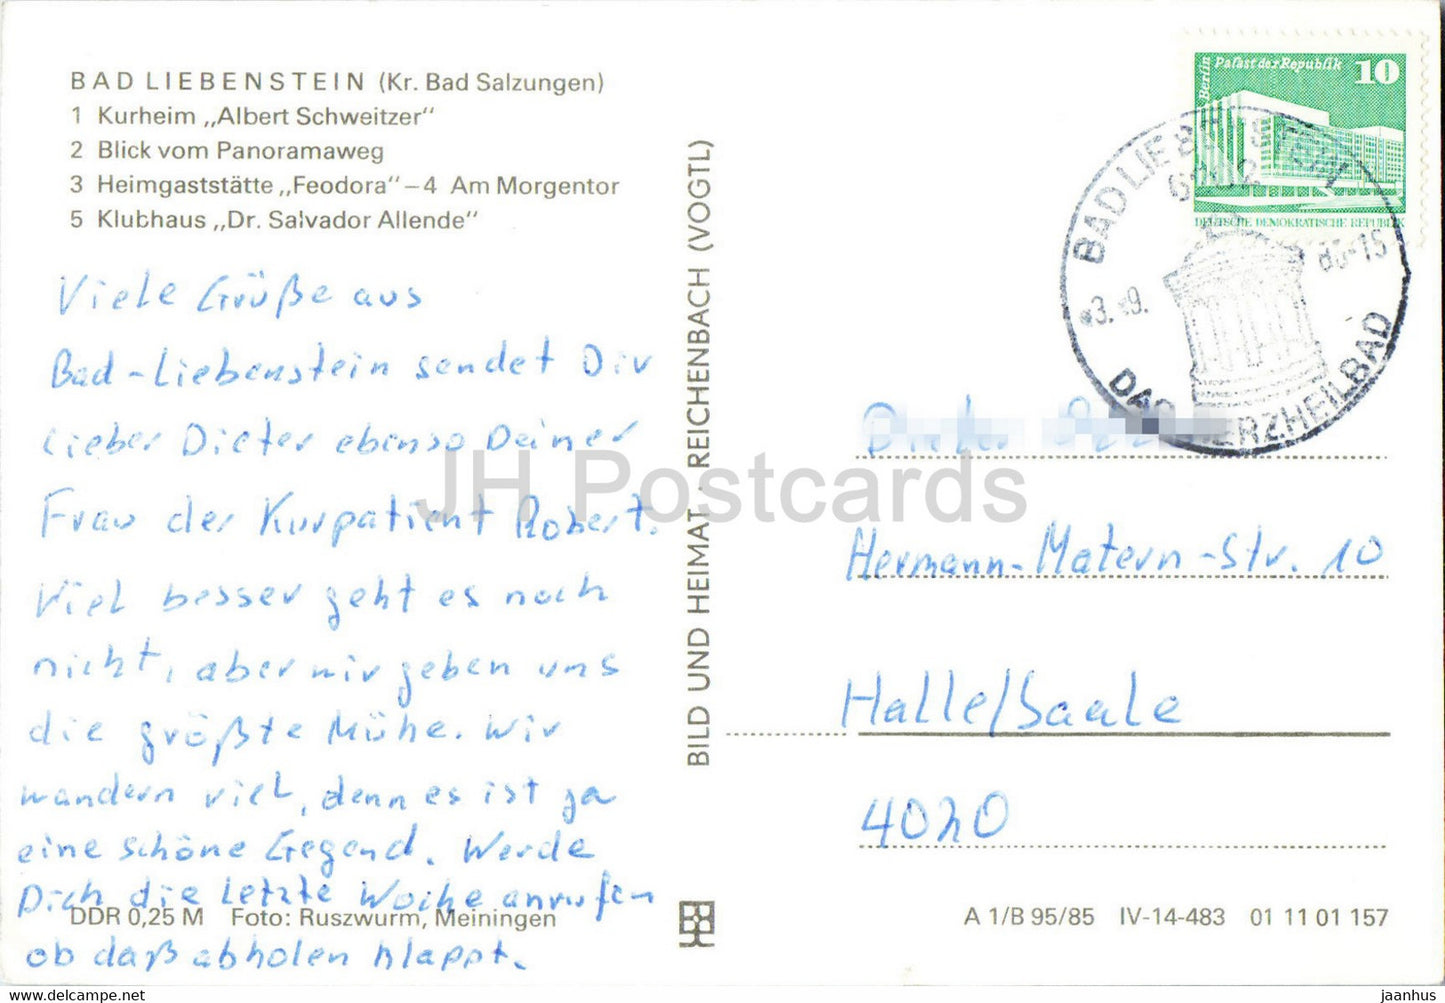 BAD LIEBENSTEIN (Kr. Bad Salzungen)
1 Kurheim „Albert Schweitzer"
2 Blick vom Panoramaweg
3 Heimgaststätte „Feodora" – 4 Am Morgentor
5 Klubhaus „Dr. Salvador Allende"
Viele Grüße aus
Bad-Liebenstein sendet Dir
Lieber Dieter ebenso Deiner
Frau der Kurpatient Robert.
Viel besser geht es noch
nicht, aber wir geben uns
die größte Mühe. Wir
wandern viel, denn es ist ja
eine schöne Gegend. Werde
Dich die letzte Woche anrufen
ob daß abholen klappt.
DDR 0,25 M Foto: Ruszwurm, Meiningen
BILD UND HEIMAT · REICHENBACH (VOGTL)
Berlin Palast der Republik 10
DEUTSCHE DEMOKRATISCHE REPUBLIK
BAD LIEBENSTEIN
DAS HERZHEILBAD
Hermann-Matern-Str. 10
Halle/Saale
4020
A 1/B 95/85 IV-14-483 01 11 01 157
JH Postcards
www.delcampe.net
jaanhus